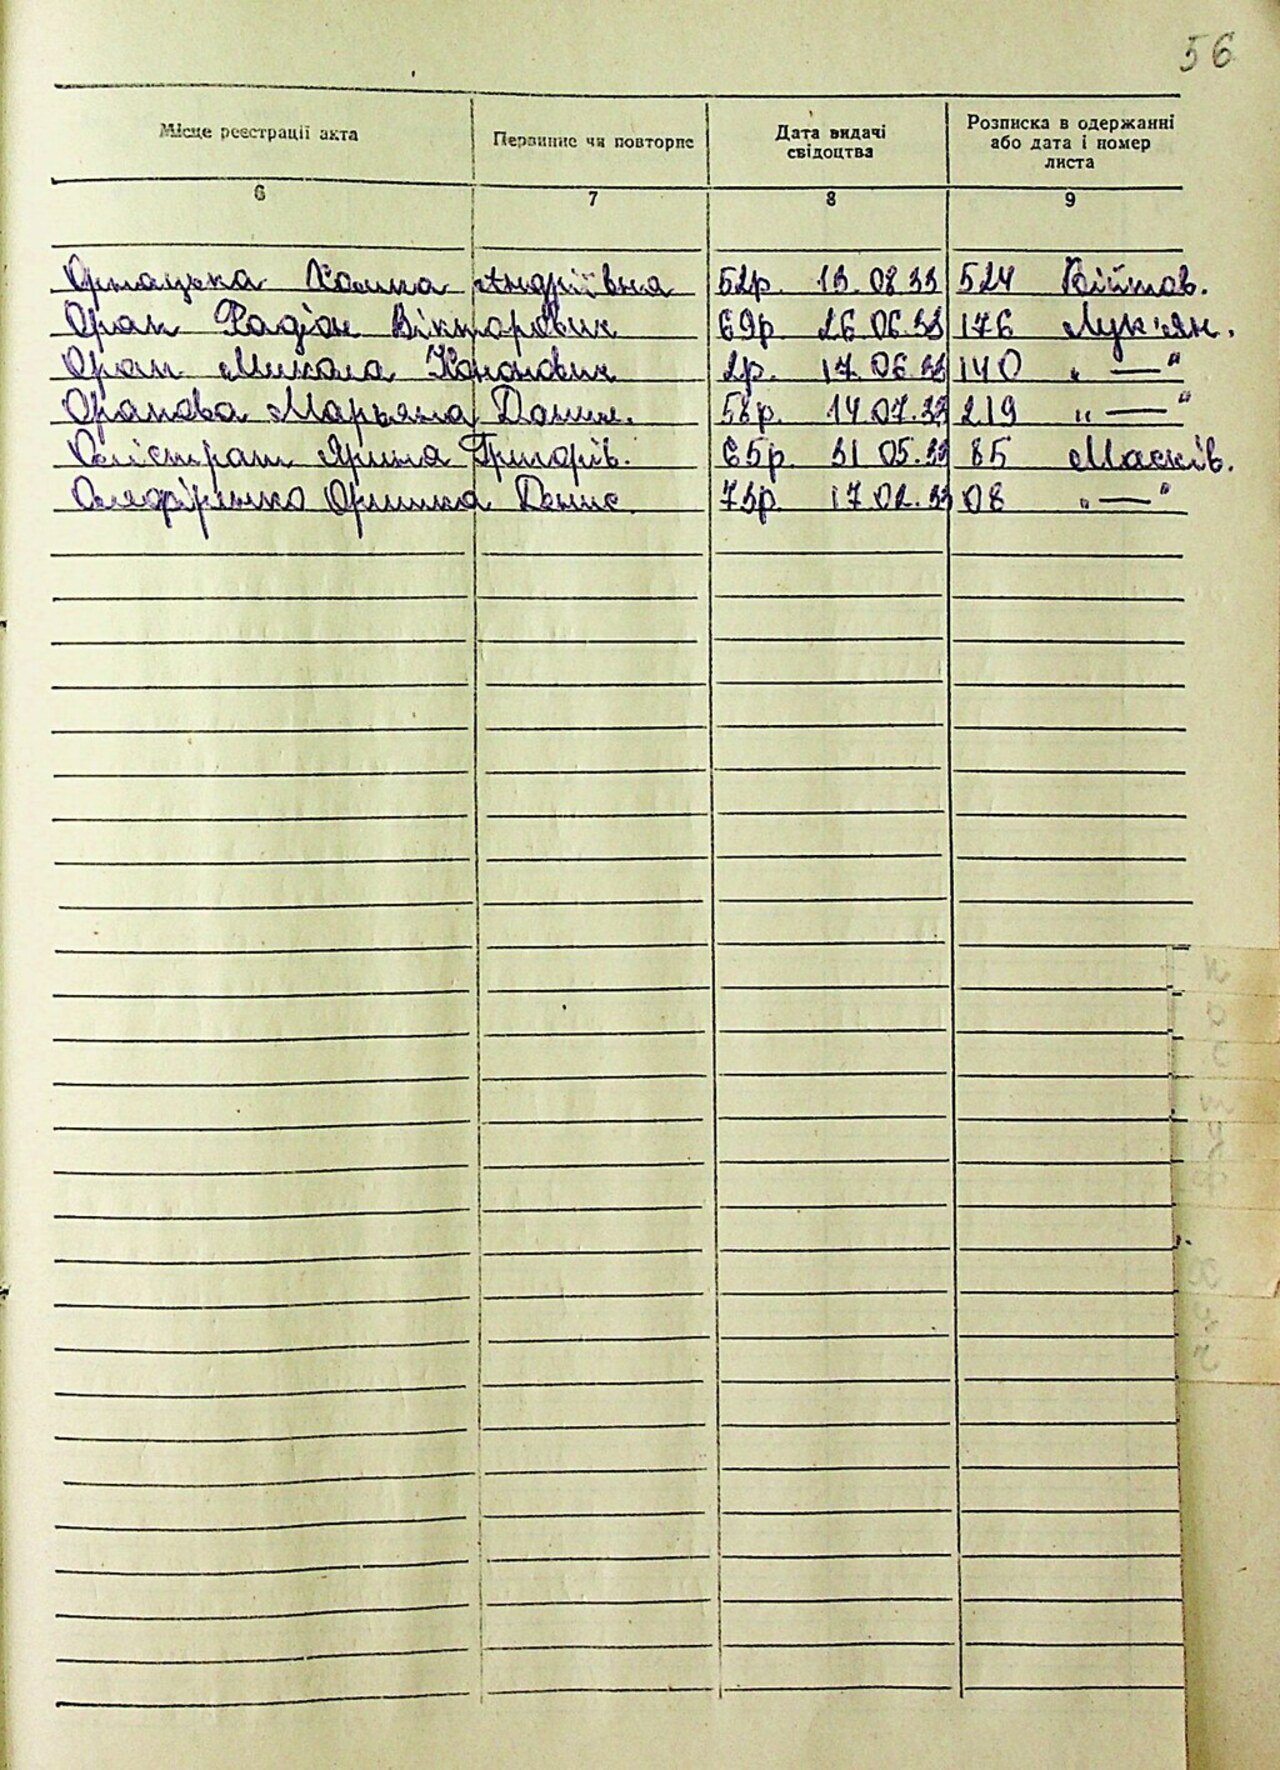 56
Місце реєстрації акта
Первинне чи повторне
Дата видачі свідоцтва
Розписка в одержанні або дата і номер листа
6 7 8 9
Ганна Андріївна 52р. 13.08.33 524 Війтов.
Орап Радіон Вікторович 69р 26.06.33 176 Лук'ян.
Орап Микола Кононович 2р. 17.06.33 140 „—"
Орапова Марьяна Данил. 58р. 14.07.33 219 „—"
Олістрат Ярина Григорів. 65р. 31 05.33 85 Масків.
Оляфіренко Оришка Денис. 73р. 17 02.33 08 „—"